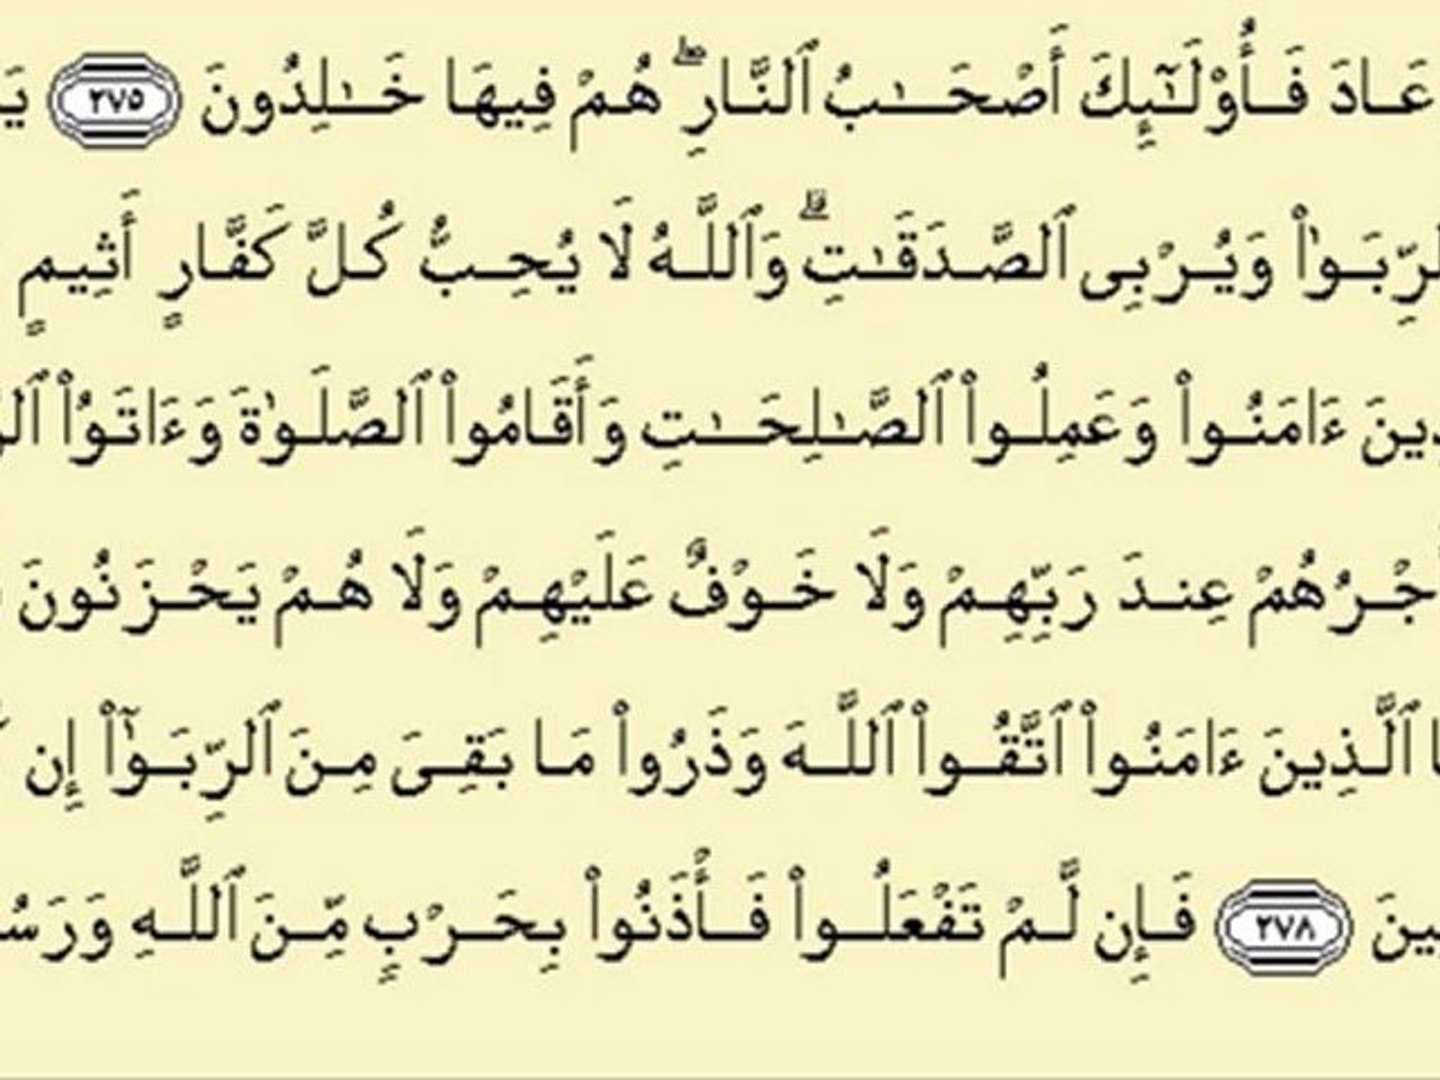 عَادَ فَأُوْلَـٰٓئِكَ أَصْحَـٰبُ ٱلنَّارِ ۖ هُمْ فِيهَا خَـٰلِدُونَ ٢٧٥ يَـ
لرِّبَوٰا۟ وَيُرْبِى ٱلصَّدَقَـٰتِ ۗ وَٱللَّهُ لَا يُحِبُّ كُلَّ كَفَّارٍ أَثِيمٍ
ذِينَ ءَامَنُوا۟ وَعَمِلُوا۟ ٱلصَّـٰلِحَـٰتِ وَأَقَامُوا۟ ٱلصَّلَوٰةَ وَءَاتَوُا۟ ٱلز
جْرُهُمْ عِندَ رَبِّهِمْ وَلَا خَوْفٌ عَلَيْهِمْ وَلَا هُمْ يَحْزَنُونَ
ا ٱلَّذِينَ ءَامَنُوا۟ ٱتَّقُوا۟ ٱللَّهَ وَذَرُوا۟ مَا بَقِىَ مِنَ ٱلرِّبَوٰٓا۟ إِن
ـينَ ٢٧٨ فَإِن لَّمْ تَفْعَلُوا۟ فَأْذَنُوا۟ بِحَرْبٍ مِّنَ ٱللَّهِ وَرَسُ